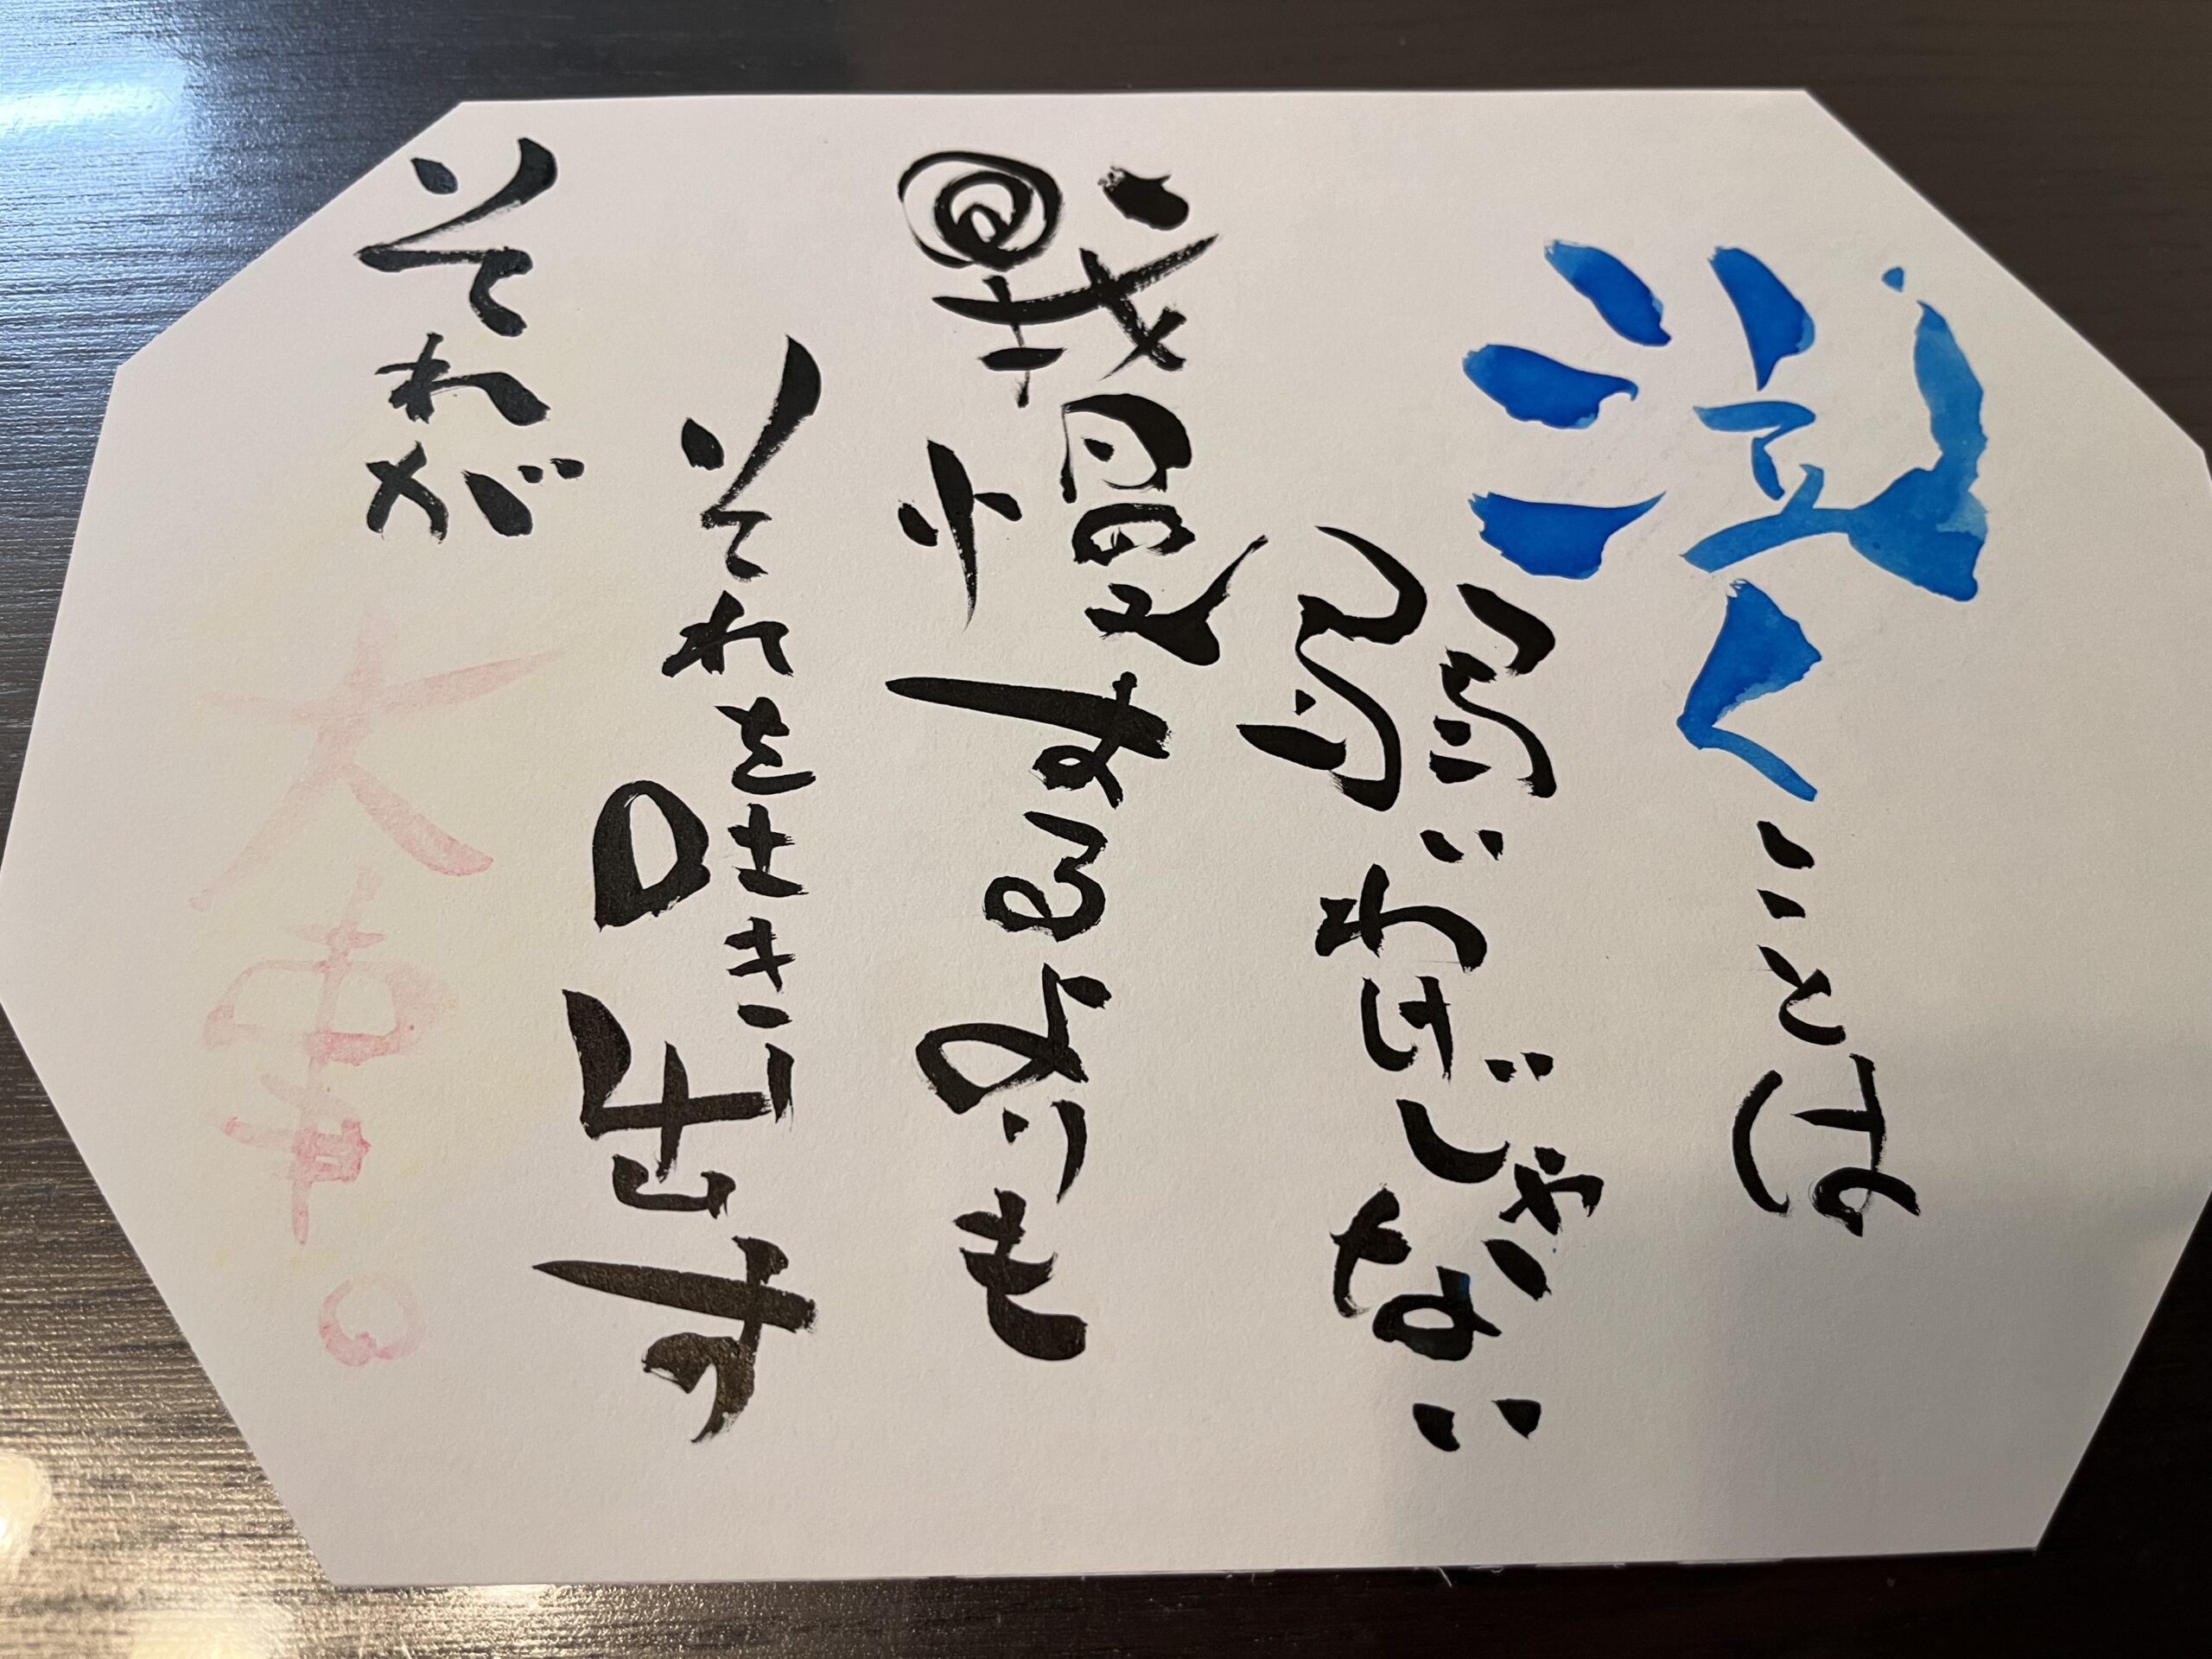 泣くことは
弱いわけじゃない
我慢するよりも
それを吐き出す
それが
大事。